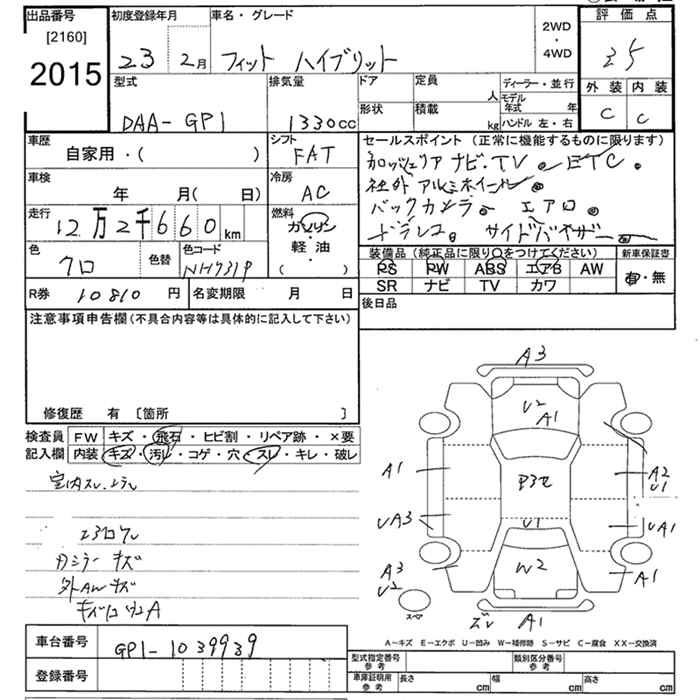 出品番号 初度登録年月 車名・グレード 2WD・4WD 評価点
[2160]
2015
23 2月 フィット ハイブリット 35
型式 排気量 ドア 定員 人 ディーラー・並行 外装 内装
形状 積載 kg モデル年式 年 ハンドル 左・右
DAA-GP1 1330cc C C
車歴 自家用・( ) シフト FAT
セールスポイント(正常に機能するものに限ります)
ナビ・TV。ETC。
車検 年 月( 日) 冷房 AC
社外アルミホイール
走行 12万2千660km 燃料 ガソリン 軽・油 ・ ( )
バックカメラ。エアロ。
ドラレコ。サイドバイザー
色 クロ 色替 色コード NH731P
装備品(純正品に限り○をつけてください) 新車保証書
PS PW ABS エアB AW 有・無
SR ナビ TV カワ
R券 10810円 名変期限 月 日
後日品
注意事項申告欄(不具合内容等は具体的に記入して下さい)
修復歴 有 [箇所 ]
検査員 FW キズ・飛石・ヒビ割・リペア跡・×要
記入欄 内装 キズ・汚レ・コゲ・穴・スレ・キレ・破レ
室内スレ、
ミラーキズ
外AWキズ
A3
U2
A1
A1
A2
U1
UA3
U1
UA1
W2
A3
U2
A1
スペア
A1
A-キズ E-エクボ U-凹み W-補修跡 S-サビ C-腐食 XX-交換済
車台番号 GP1-1039939
登録番号
型式指定番号 参考 類別区分番号 参考
車庫証明用 参考 長さ cm 幅 cm 高さ cm